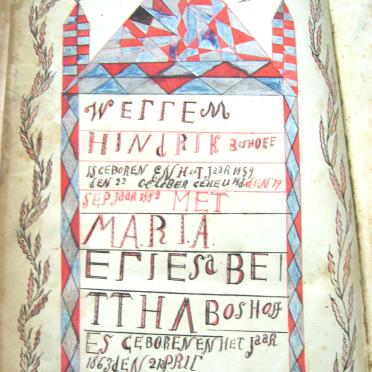 WELLEM
HINDRIK BOSHOFF
IS GEBOREN EN HET JAAR 1859
DEN 22 OCTOBER GEHEUWD DEN 19
SEP JAAR 1882 MET
MARIA
ELIESABEI
TTHA BOSHOFF
ES GEBOREN EN HET JAAR
1863 DEN 21 APRIL